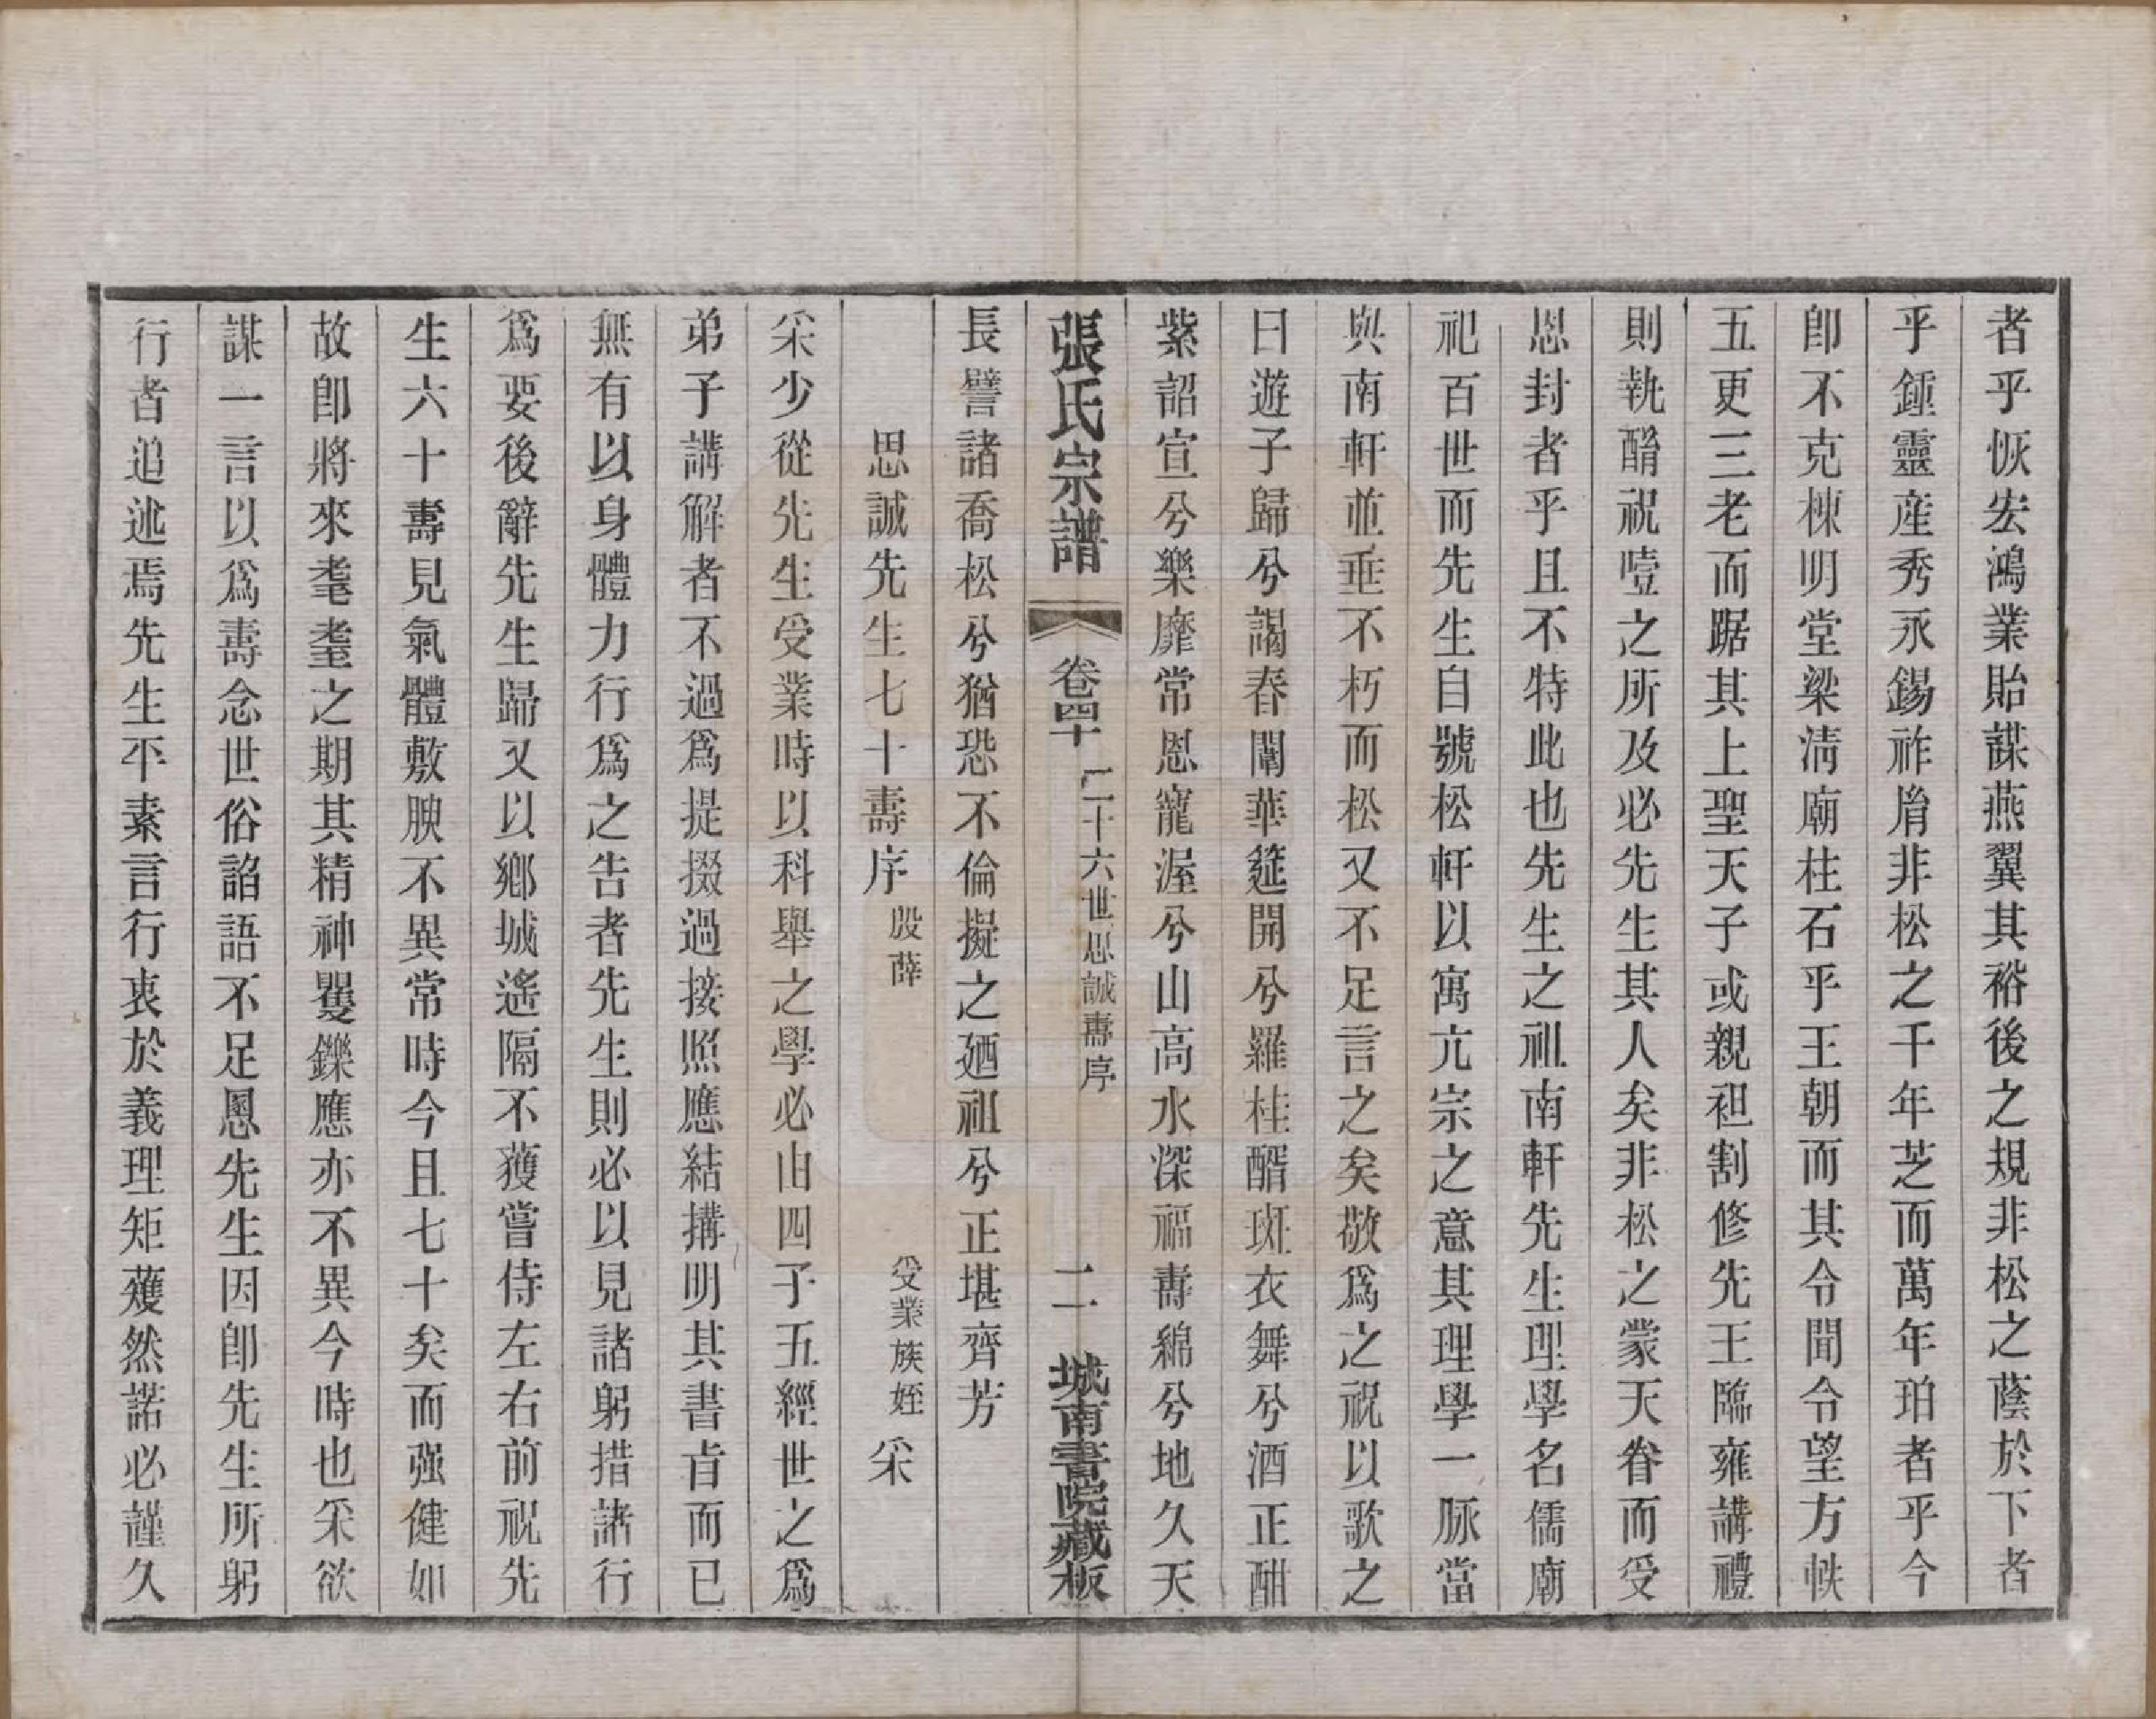 者乎恢宏鴻業貽謀燕翼其裕後之規非松之蔭於下者
乎鍾靈産秀永錫祚脋非松之千年芝而萬年珀者乎今
卽不克棟明堂梁清廟柱石乎王朝而其令聞令望方帙
五更三老而踞其上聖天子或親袒割修先王臨雍講禮
則執酳祝噎之所及必先生其人矣非松之蒙天眷而受
恩封者乎且不特此也先生之祖南軒先生理學名儒廟
祀百世而先生自號松軒以寓亢宗之意其理學一脉當
與南軒並垂不朽而松又不足言之矣敬爲之祝以歌之
曰遊子歸兮謁春闈華筵開兮羅桂醑斑衣舞兮酒正酣
紫詔宣兮樂靡常恩寵渥兮山高水深福壽綿兮地久天
張氏宗譜 卷四十 二十六世思誠壽序 二 城南書院藏板
長譬諸喬松兮猶恐不倫擬之廼祖兮正堪齊芳
思誠先生七十壽序 殷薛 受業族姪 采
采少從先生受業時以科舉之學必由四子五經世之爲
弟子講解者不過爲提掇過接照應結搆明其書旨而已
無有以身體力行爲之告者先生則必以見諸躬措諸行
爲要後辭先生歸又以鄉城遙隔不獲嘗侍左右前祝先
生六十壽見氣體敷腴不異常時今且七十矣而强健如
故卽將來耄耋之期其精神矍鑠應亦不異今時也采欲
謀一言以爲壽念世俗諂語不足慁先生因卽先生所躬
行者追述焉先生平素言行衷於義理矩矱然諾必謹久